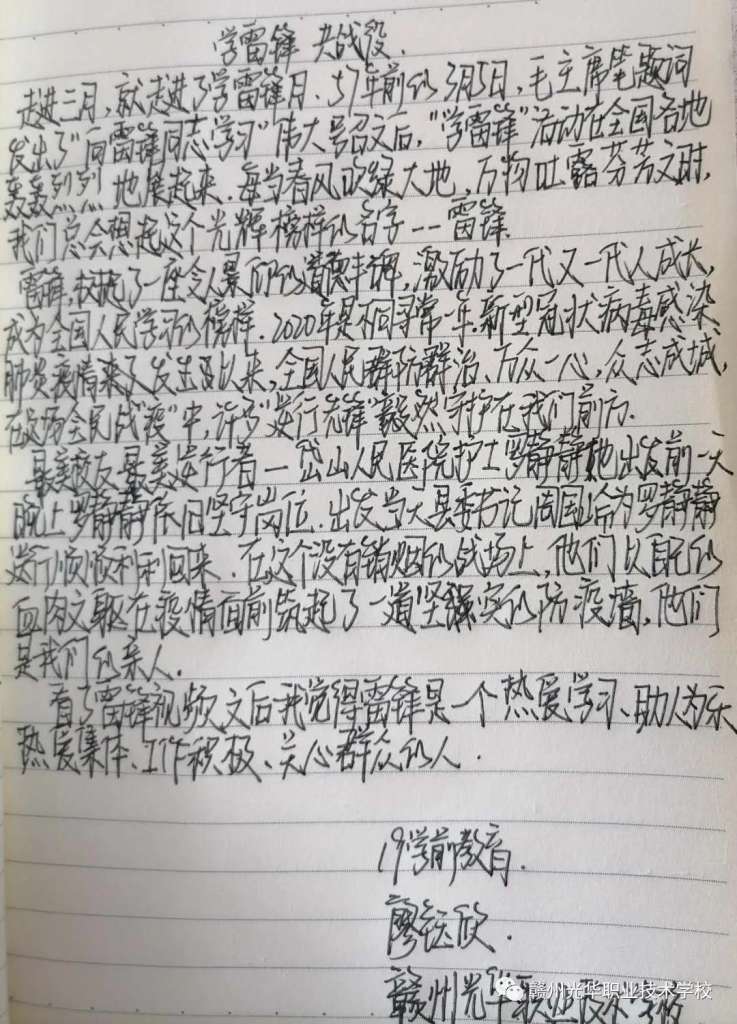 学雷锋 共战役.
走进三月,就走进了学雷锋月.57年前的3月5日,毛主席笔题词
发出了"向雷锋同志学习"伟大号召之后,"学雷锋"活动在全国各地
轰轰烈烈 地展起来.每当春风吹绿大地,万物吐露芬芳之时,
我们总会想起这个光辉榜样的名字--雷锋.
雷锋,树起了一座令人景仰的道德丰碑,激励了一代又一代人成长,
成为全国人民学习的榜样.2020年是不同寻常一年.新型冠状病毒感染
肺炎疫情来了发出以来,全国人民群防群治、万众一心,众志成城,
在这场全民战"疫"中,许多"逆行先锋"毅然守护在我们前方.
最美校友最美逆行者一岱山人民医院护士罗静静她出发前一天
晚上罗静静依旧坚守岗位.出发当天县委书记周国 为罗静静
送行顺顺利利回来.在这个没有销烟的战场上,他们以自己的
血肉之躯在疫情面前筑起了一道坚强实的防疫墙,他们
是我们的亲人.
看了雷锋视频之后我觉得雷锋是一个热爱学习、助人为乐
热爱集体、工作积极、关心群众的人.
19学前教育.
廖钰欣.
赣州光华职业技术学校
赣州光华职业技术学校